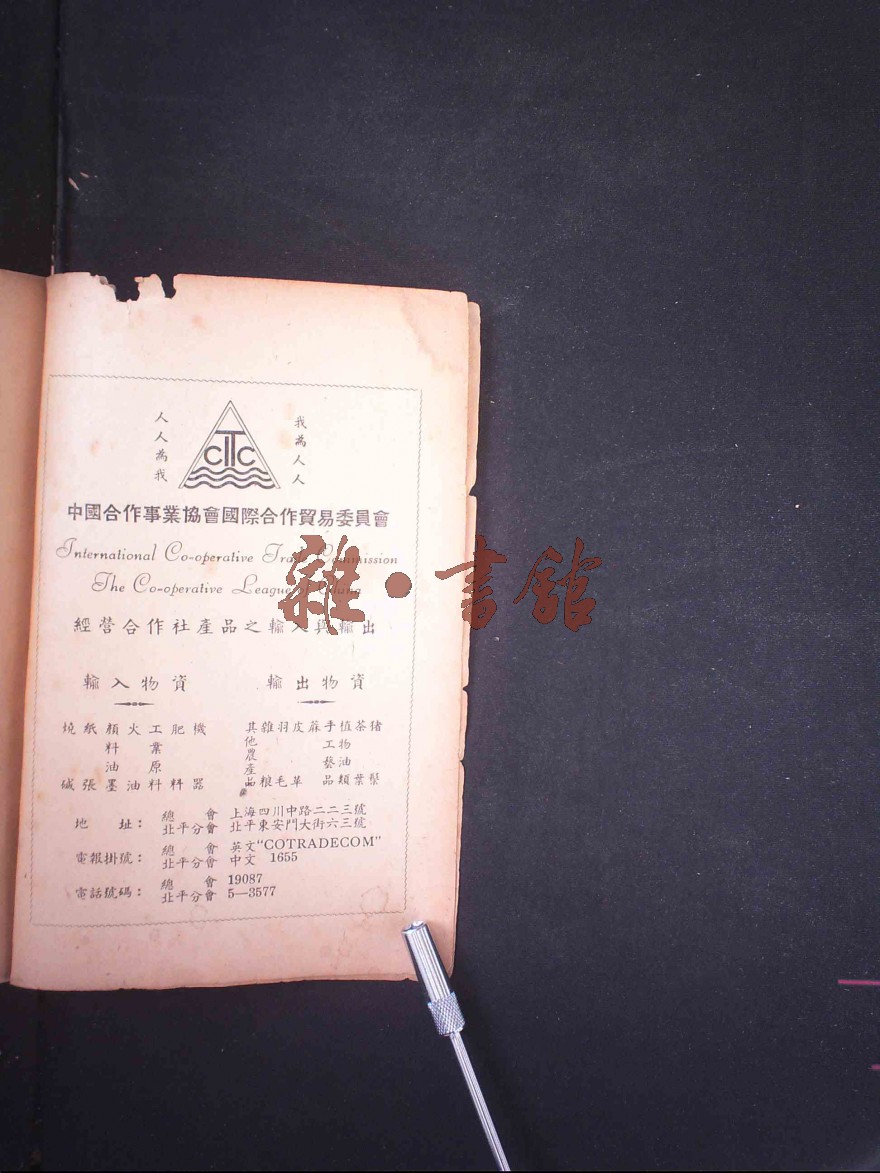 我為人人
人人為我
CITC
中國合作事業協會國際合作貿易委員會
International Co-operative Trade Commission
The Co-operative League of China
經營合作社產品之輸入與輸出
輸出物資
猪鬃
茶葉
植物油類
手工藝品
蔴
皮革
羽毛
雜粮
其他農產品
輸入物資
機器
肥料
工業原料
火油
顏料油墨
紙張
燒碱
地址：總會 上海四川中路二二三號
北平分會 北平東安門大街六三號
電報掛號：總會 英文"COTRADECOM"
北平分會 中文 1655
電話號碼：總會 19087
北平分會 5—3577
雜·書館